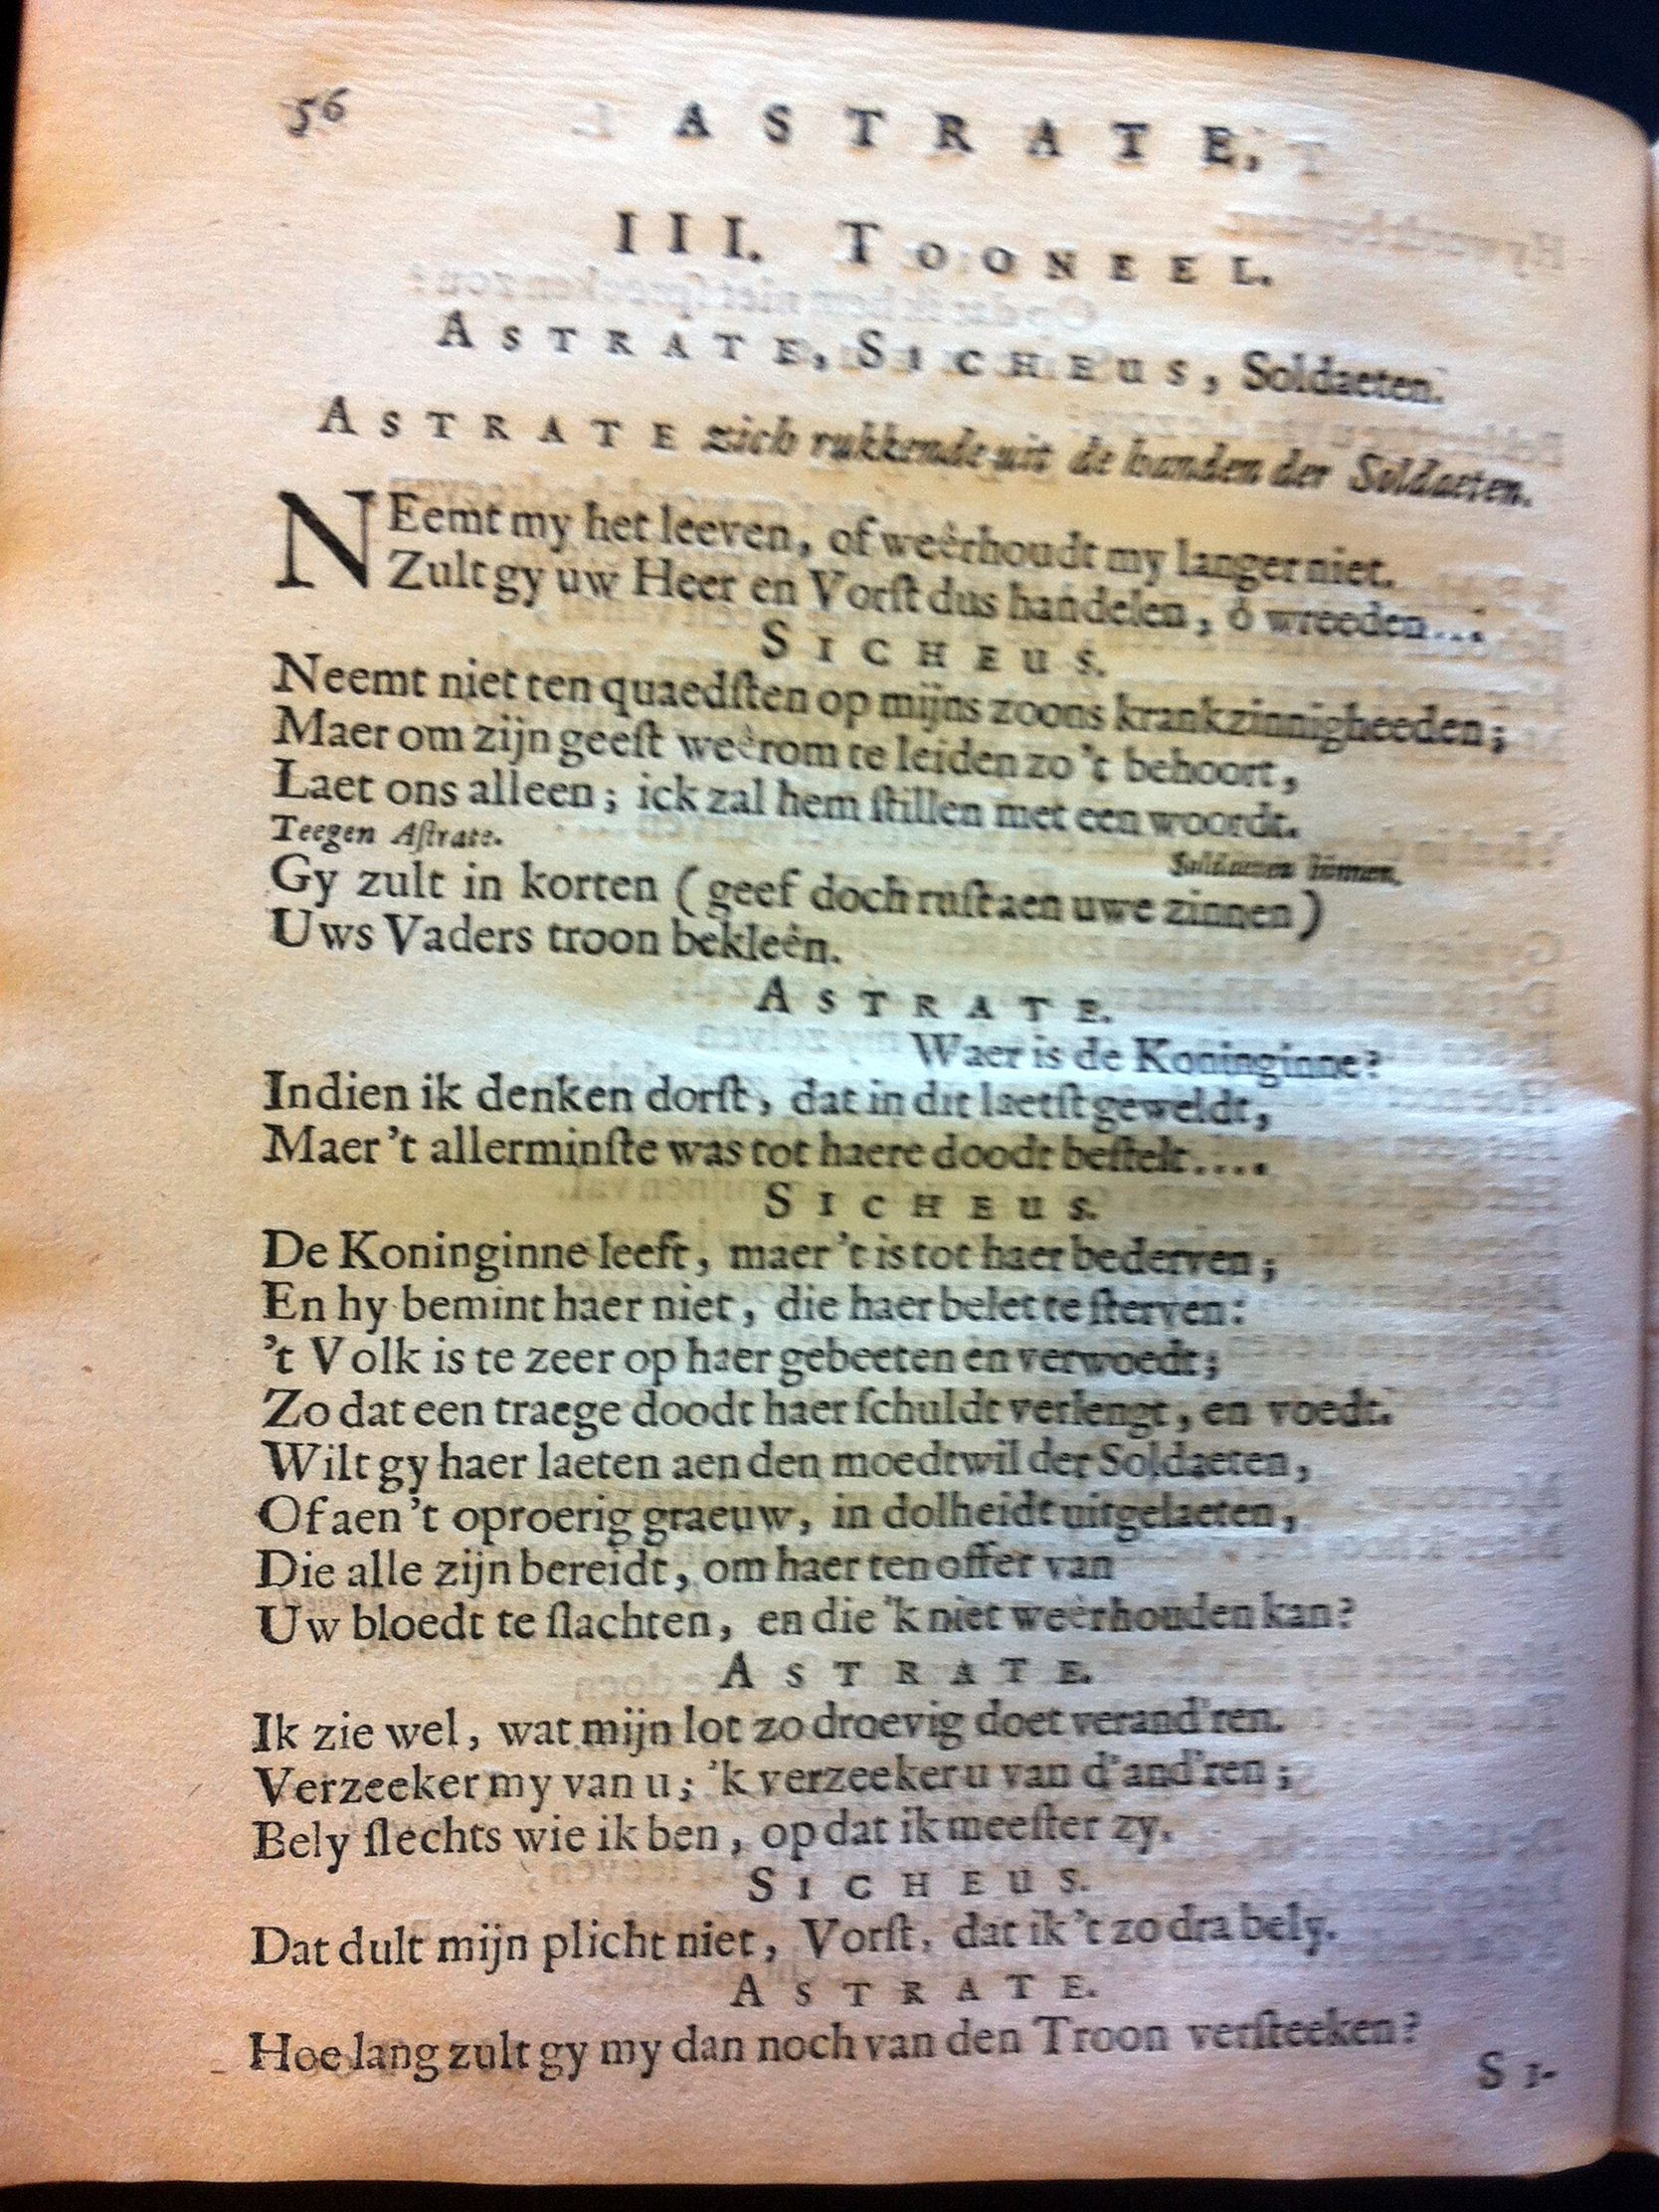 56
ASTRATE.
III. TOONEEL.
ASTRATE, SICHEUS, Soldaeten.
ASTRATE zich rukkende uit de handen der Soldaeten.
NEemt my het leeven, of weêrhoudt my langer niet.
Zult gy uw Heer en Vorſt dus handelen, ô wreeden....
SICHEUS.
Neemt niet ten quaedſten op mijns zoons krankzinnigheeden;
Maer om zijn geeſt weêrom te leiden zo 't behoort,
Laet ons alleen; ick zal hem ſtillen met een woordt.
Teegen Aſtrate.
Soldaeten binnen.
Gy zult in korten (geef doch ruſt aen uwe zinnen)
Uws Vaders troon bekleên.
ASTRATE.
Waer is de Koninginne?
Indien ik denken dorſt, dat in dit laetſt geweldt,
Maer 't allerminſte was tot haere doodt beſtelt....
SICHEUS.
De Koninginne leeft, maer 't is tot haer bederven;
En hy bemint haer niet, die haer belet te ſterven:
't Volk is te zeer op haer gebeeten en verwoedt;
Zo dat een traege doodt haer ſchuldt verlengt, en voedt.
Wilt gy haer laeten aen den moedtwil der Soldaeten,
Of aen 't oproerig graeuw, in dolheidt uitgelaeten,
Die alle zijn bereidt, om haer ten offer van
Uw bloedt te ſlachten, en die 'k niet weêrhouden kan?
ASTRATE.
Ik zie wel, wat mijn lot zo droevig doet verand'ren.
Verzeeker my van u; 'k verzeeker u van d'and'ren;
Bely ſlechts wie ik ben, op dat ik meeſter zy.
SICHEUS.
Dat dult mijn plicht niet, Vorſt, dat ik 't zo dra bely.
ASTRATE.
Hoe lang zult gy my dan noch van den Troon verſteeken?
SI-